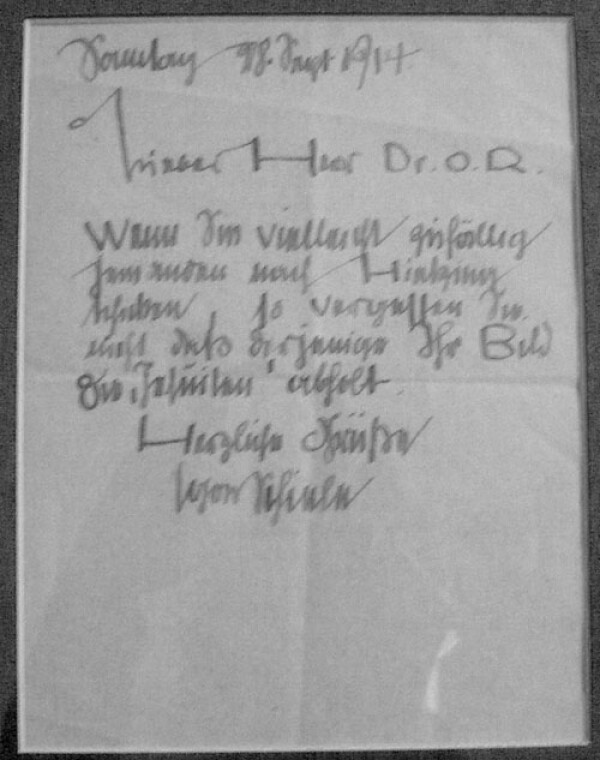 Sonntag 28. Sept 1914
Lieber Herr Dr. O. R.
Wenn Sie vielleicht zufällig
jemanden nach Hietzing
schicken, so vergessen Sie
nicht daß derjenige Ihr Bild
die „Jesuiten" abholt.
Herzliche Grüße
Egon Schiele